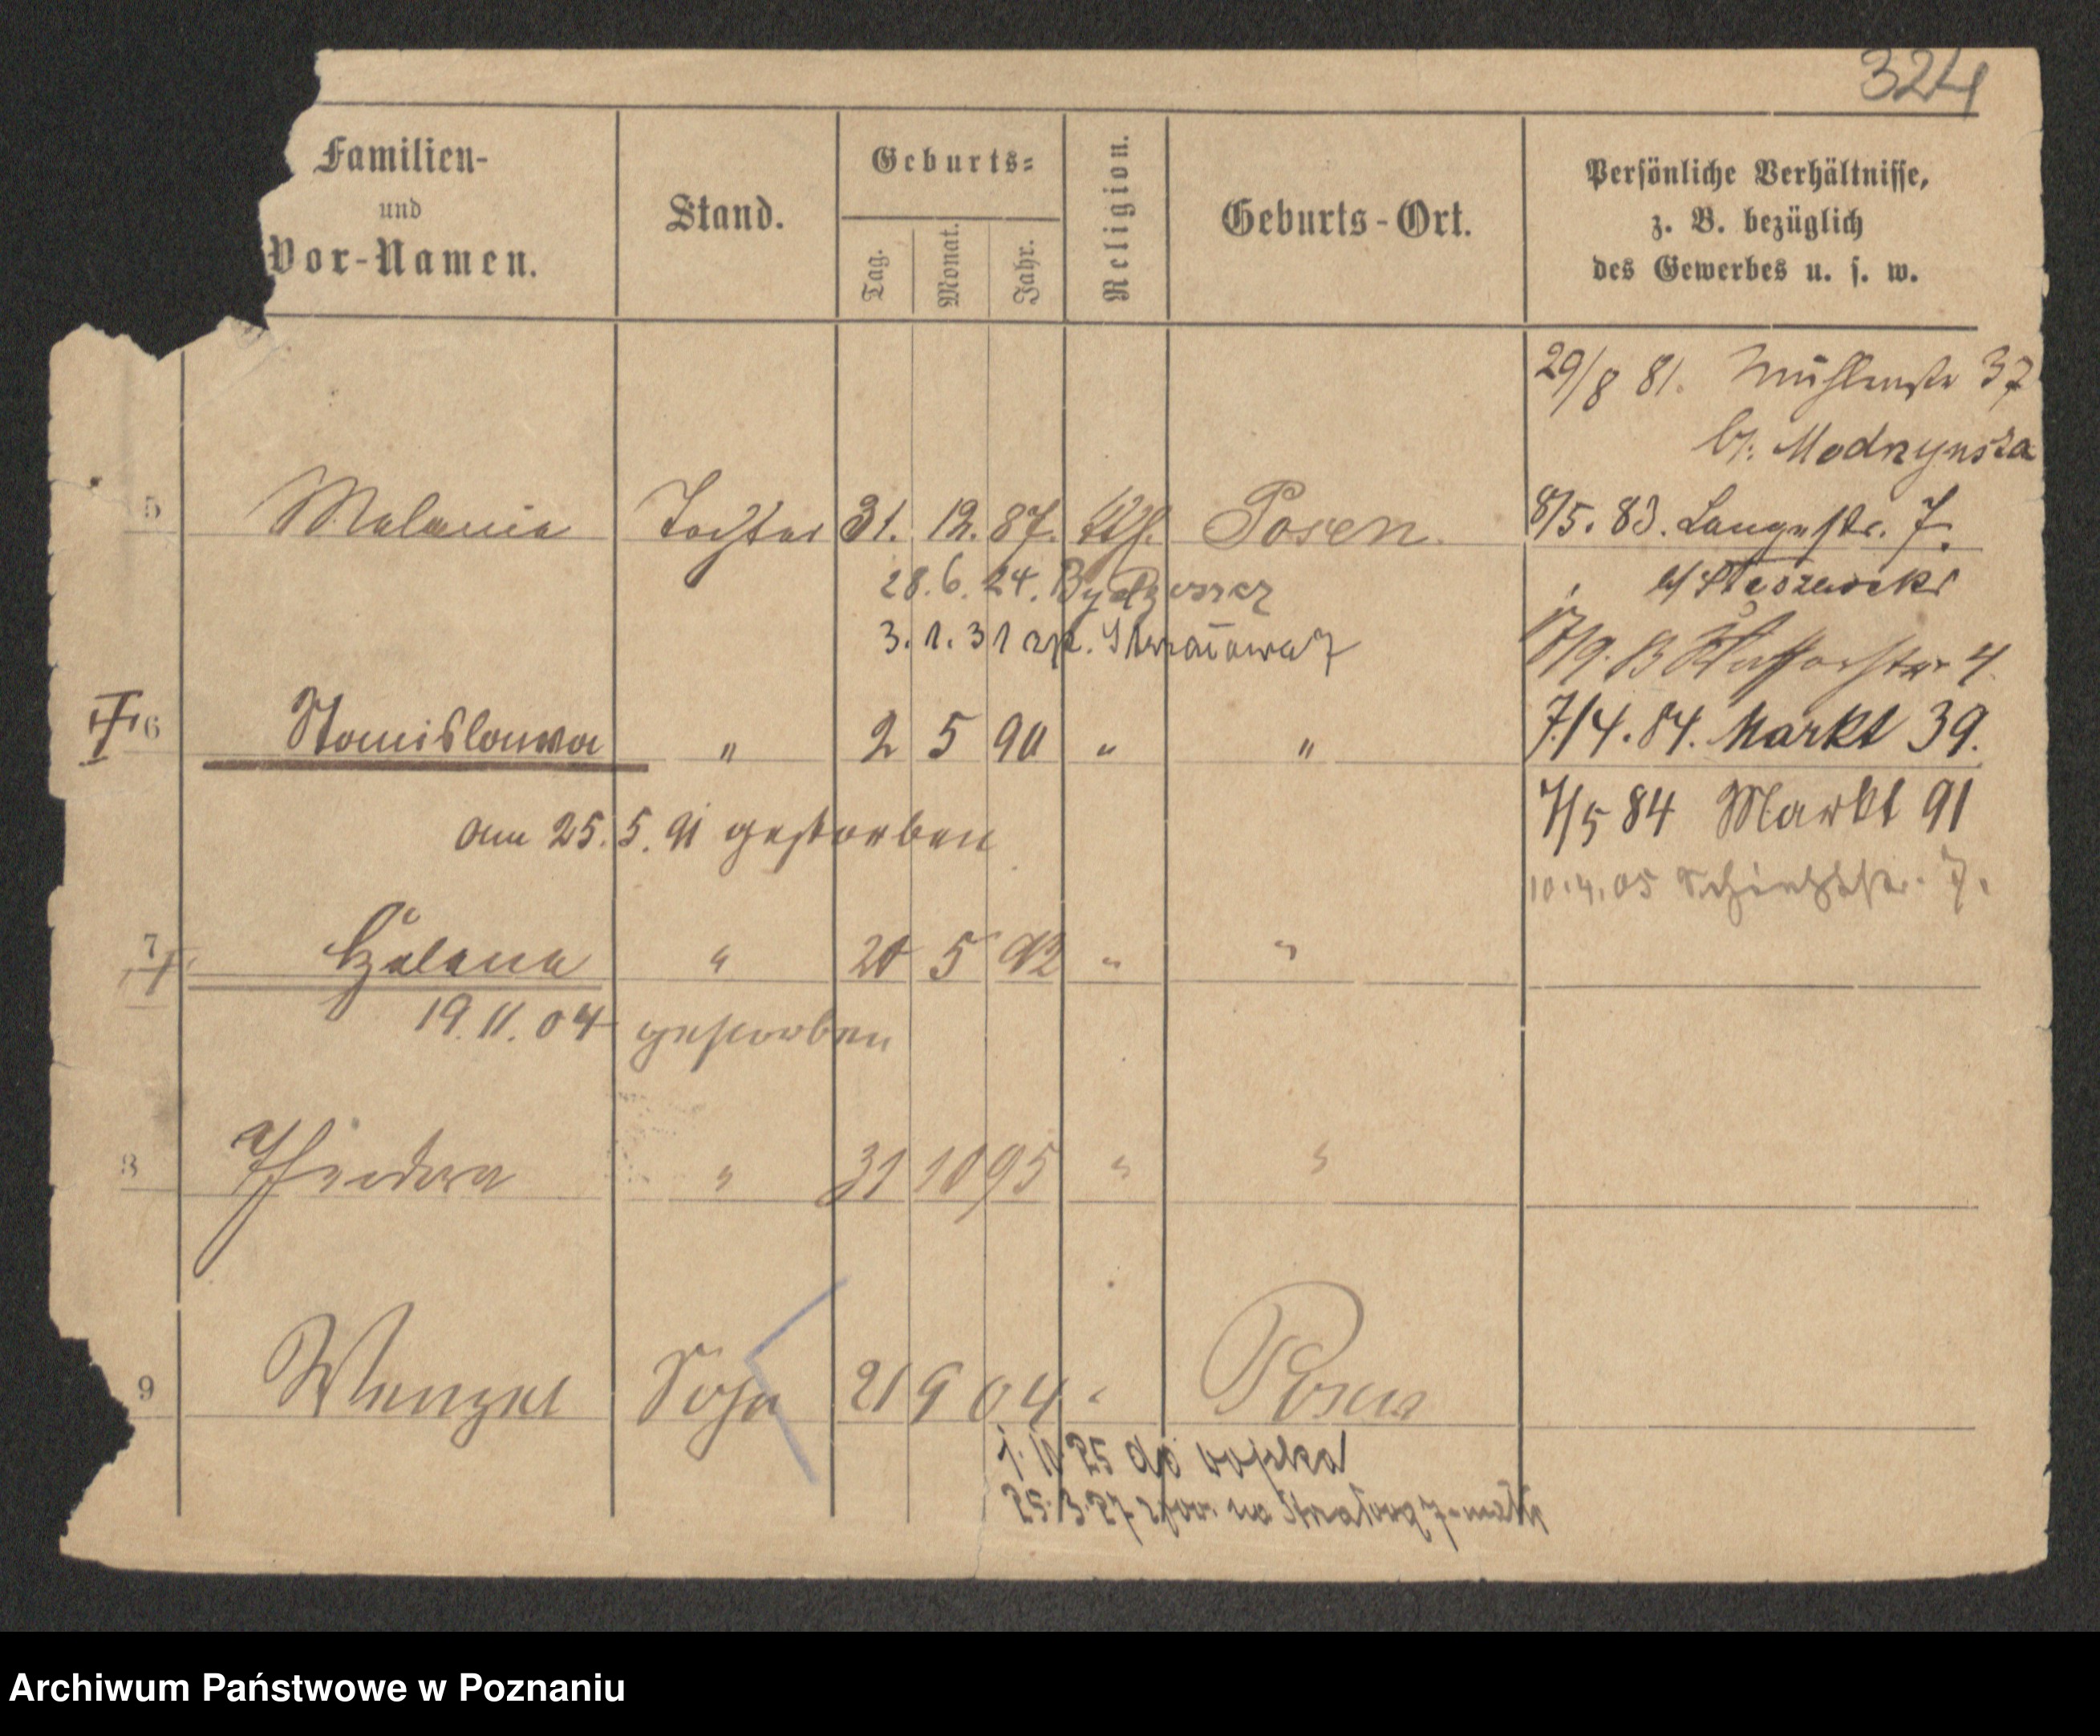 324
Familien-
und
Vor-Namen.
Stand.
Geburts-
Tag.
Monat.
Jahr.
Religion.
Geburts-Ort.
Persönliche Verhältnisse,
z. B. bezüglich
des Gewerbes u. s. w.
29/8 81. Mühlenstr 37
b/. Modrzynska
5 Melanie Tochter 31. 12. 87. kth. Posen.
8/5. 83. Langestr. 7.
28. 6. 24. Bydgoszcz
b/ Steszewski
3. 1. 31
6 Stanislawa " 2 5 90 " "
7/4. 84. Markt 39.
am 25. 5. 91 gestorben
7/5 84 Markt 91
10. 4. 05 7.
7 Helene " 5 92 " "
19. 11. 04 gestorben
8 " 31 10 95 " "
9 Wenzel Sohn 21 9 04 " Posen
25 do wojska
25. 3. 27 na
Archiwum Państwowe w Poznaniu